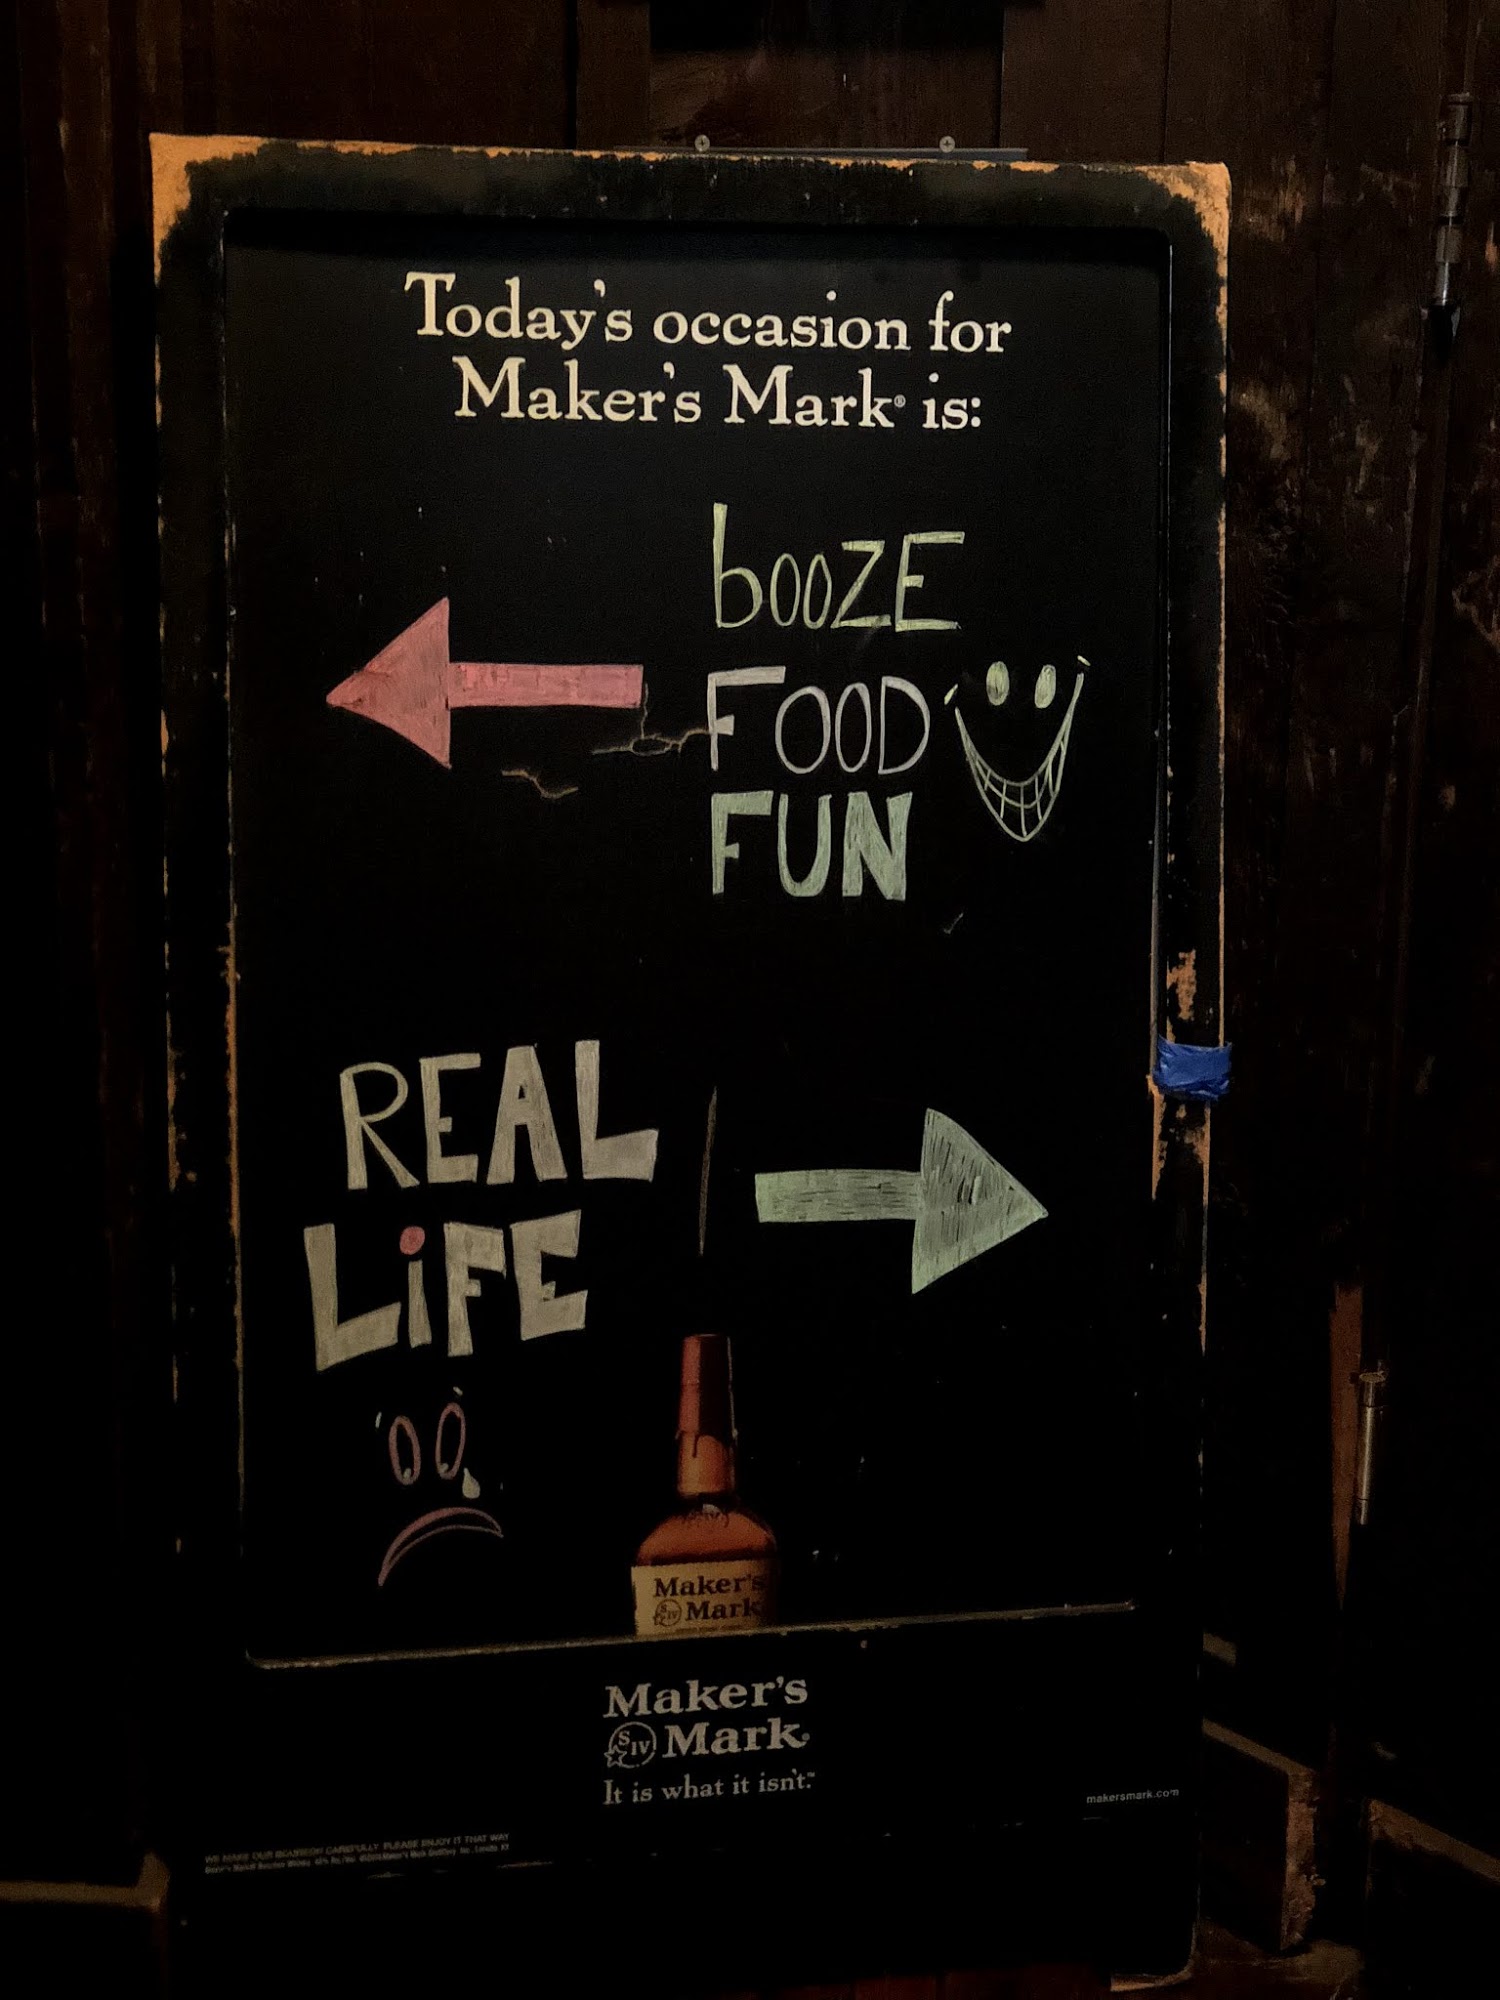 Today's occasion for
Maker's Mark® is:
booZE
FOOD
FUN
REAL
LiFE
Maker's
SIV Mark
Maker's
SIV Mark®
It is what it isn't.™
makersmark.com
WE MAKE OUR BOURBON CAREFULLY. PLEASE ENJOY IT THAT WAY.